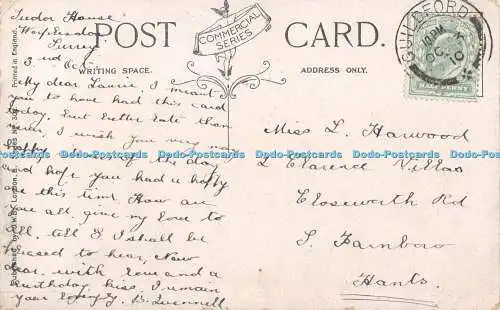 Tudor House
Surrey
3rd Oct
My dear Laurie, I meant
you to have had this card
today. But better late than
never, I wish you very many
happy returns of the day
and hope you had a happy
one this time. How are
you all, give my love to
all, tell I shall be
pleased to hear, Now
dear, with love and a
birthday kiss, I remain
your
POST CARD.
COMMERCIAL
SERIES
WRITING SPACE.
ADDRESS ONLY.
GUILDFORD
OC 3
10
HALF PENNY
Miss L. Harwood
2 Clarence Villas
Closeworth Rd
S. Farnboro
Hants.
Printed in England.
Dodo-Postcards Dodo-Postcards Dodo-Postcards Dodo-Postcards Dodo-Postcards